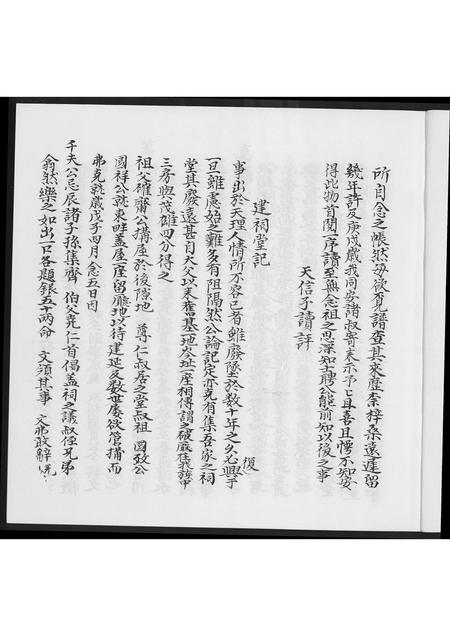 所自念之悵然每欲覓譜查其來歷柰梓桑遠遲留
幾年許及庚戌歲我同安諸叔寄來示予予且喜且愕不知安
得此物首閱一序讀至無念祖之思深知士聘公能前知以後之事
天信子讀評
建祠堂記
事出於天理人情所不容已者雖廢墜於數十年之久必興于
復
一旦雖慮始之難多有阻隔然公論記定亦克有集吾家之祠
堂其廢遠甚自大父以來舊基地岁址一座相傳謂之破廳在我族中
三房與茂雄四分得之
祖父確齋公搆屋於後隙地 尊仁叔居之堂叔祖 國致公
國祥公就東畔蓋屋一座留廳地以待建延及数世屢欲營搆而
弗克就歲戊子四月念五日因
千夫公忌辰諸子孫集齊 伯父堯仁首倡蓋祠之議叔侄兄弟
翕然樂之如出一口各題銀五十兩命 文須其事 文弗敢辭